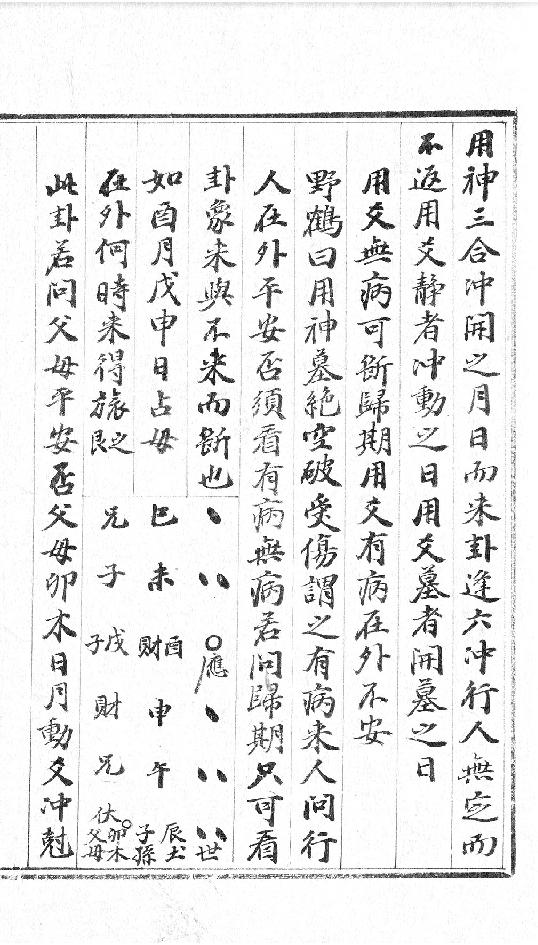 用神三合冲開之月日而来卦逢六冲行人無定而
不返用爻静者冲動之日用爻墓者開墓之日
用爻無病可断歸期用爻有病在外不安
野鶴曰用神墓絶空破受傷謂之有病来人問行
人在外平安否須看有病無病若問歸期只可看
卦象来與不来而断也
如酉月戊申日占母
在外何時来得旅之艮
、 〃 〇應 、 〃 〃世
巳 未 酉財 申 午 辰土子孫
兄 子 戌子 財 兄 伏卯木父母
此卦若問父母平安否父母卯木日月動爻冲尅